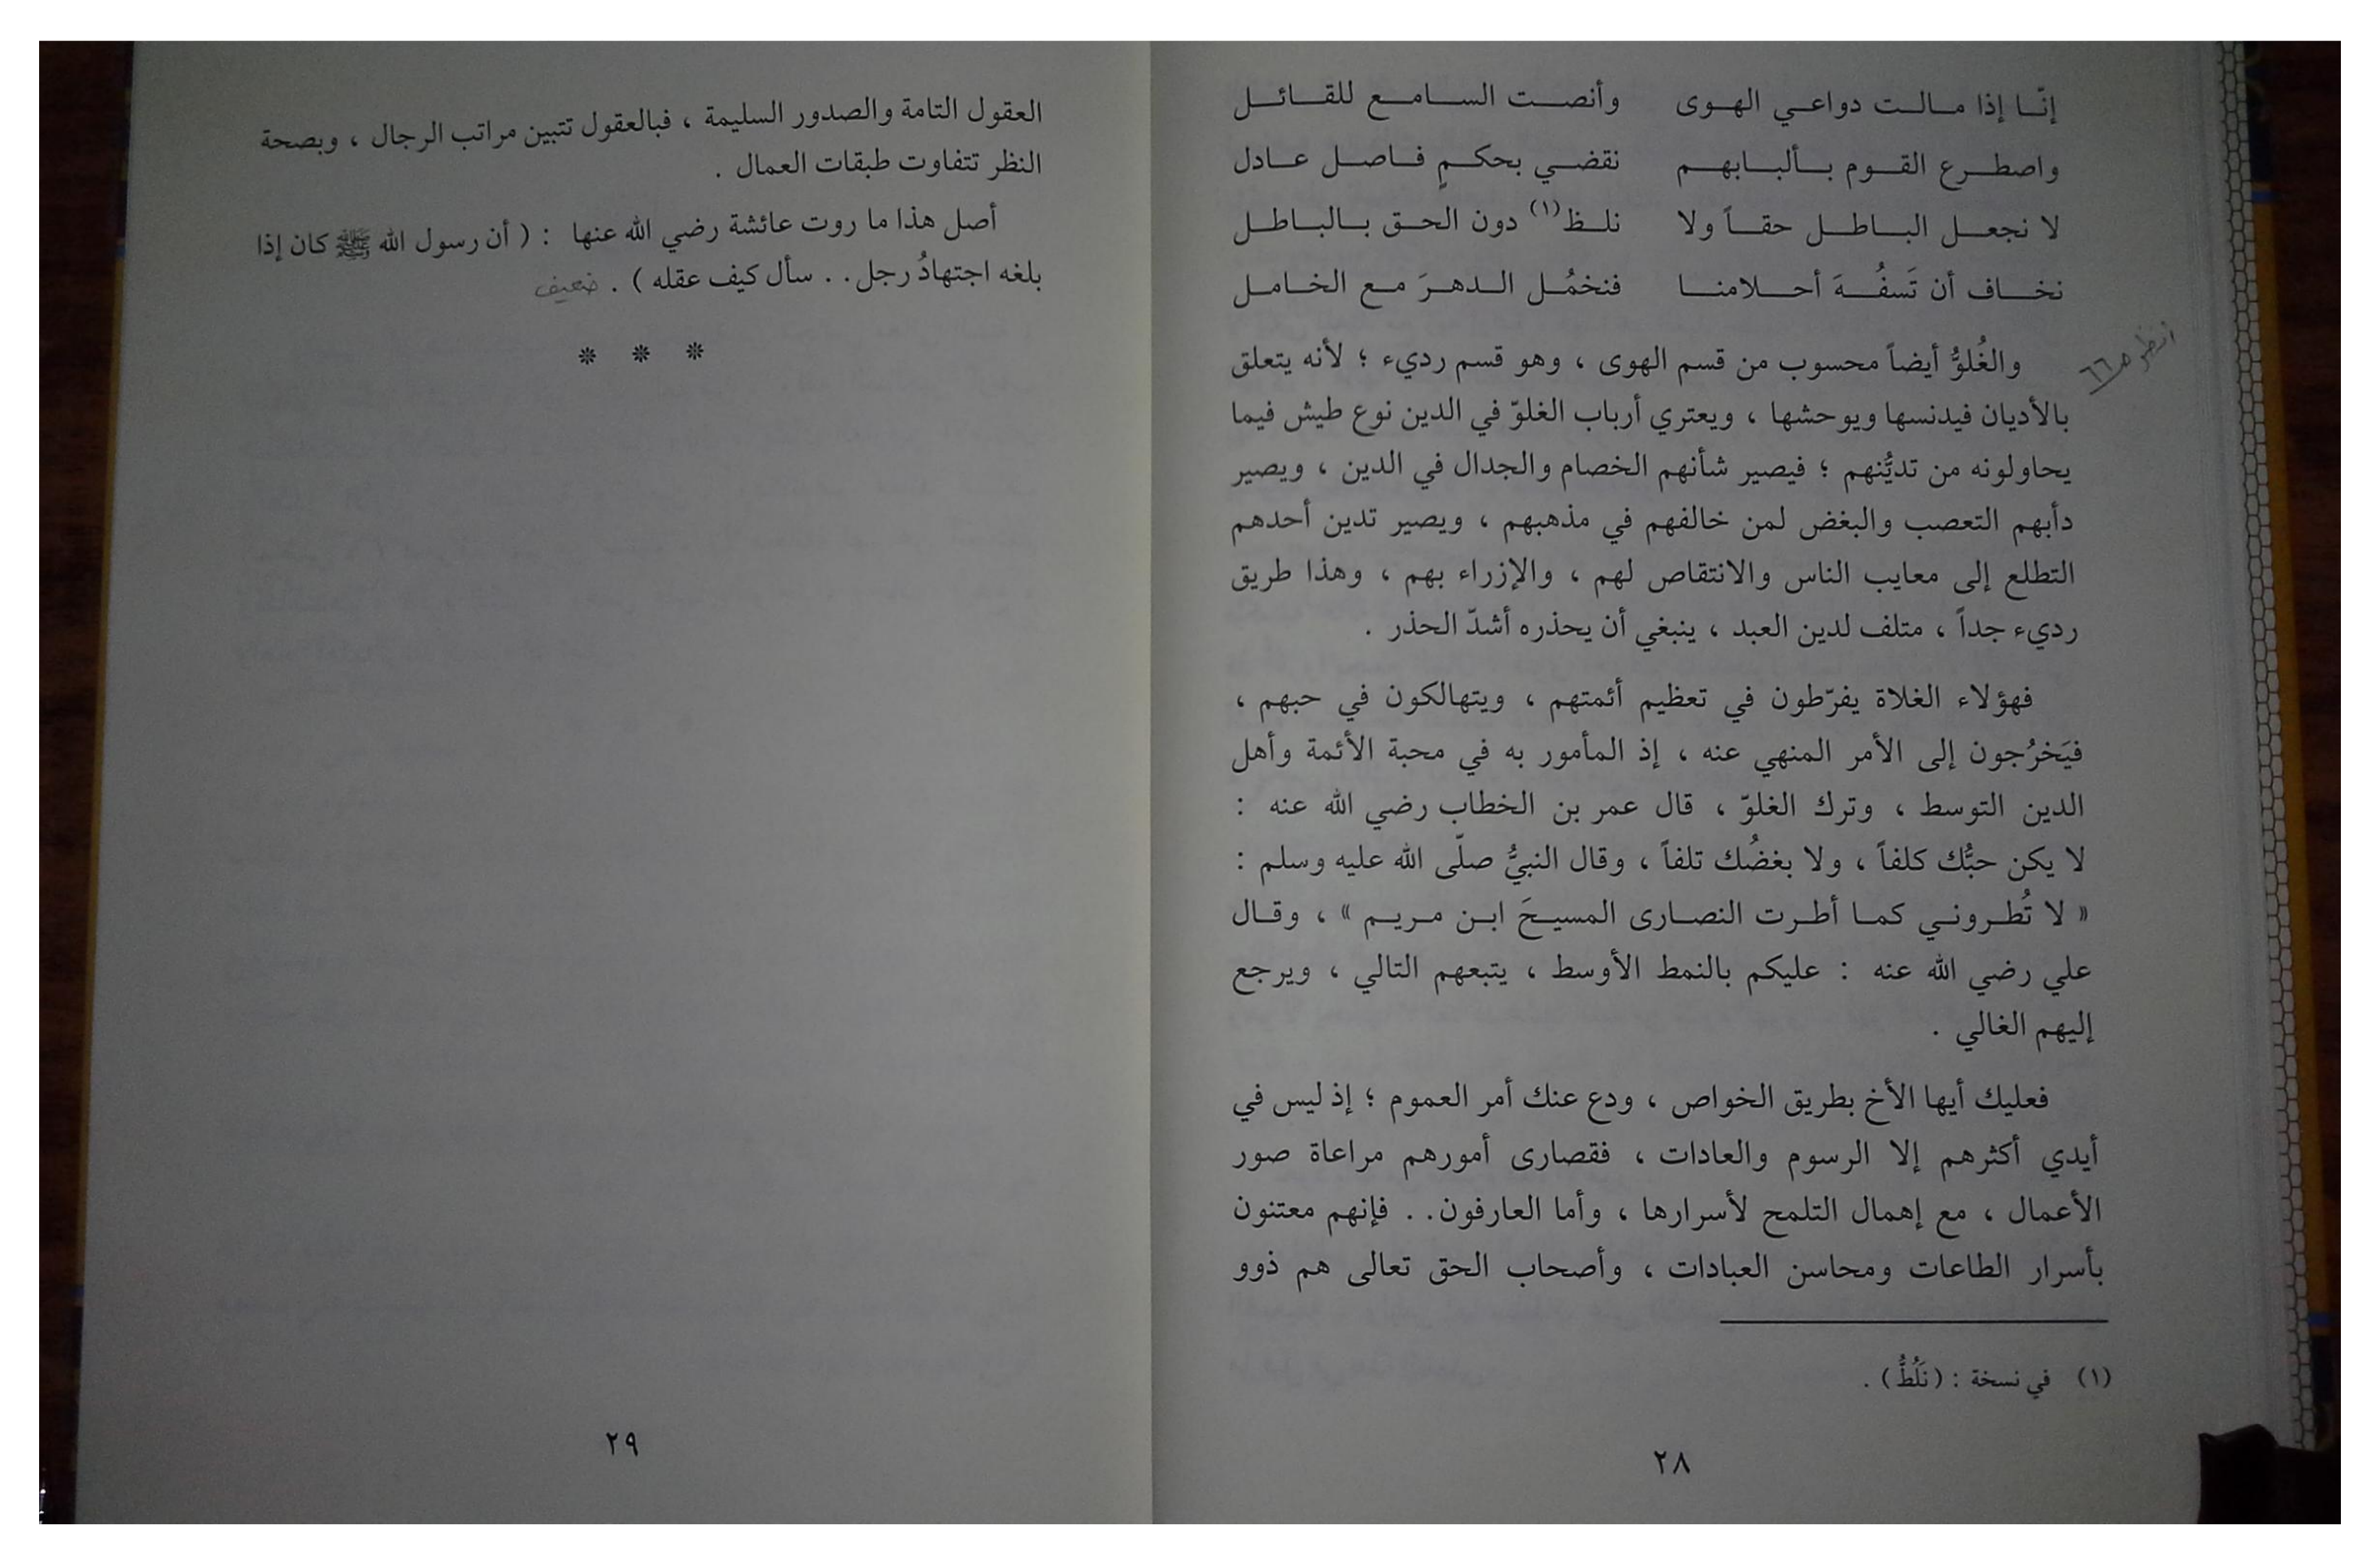 إنّا إذا مالت دواعي الهوى وأنصت السامع للقائل
واصطرع القوم بألبابهم نقضي بحكمٍ فاصل عادل
لا نجعل الباطل حقاً ولا نلظ(١) دون الحق بالباطل
نخاف أن تَسفُهَ أحلامنا فنخمُل الدهرَ مع الخامل
انظر ص ٦٦
والغُلوُّ أيضاً محسوب من قسم الهوى ، وهو قسم رديء ؛ لأنه يتعلق
بالأديان فيدنسها ويوحشها ، ويعتري أرباب الغلوّ في الدين نوع طيش فيما
يحاولونه من تديُّنهم ؛ فيصير شأنهم الخصام والجدال في الدين ، ويصير
دأبهم التعصب والبغض لمن خالفهم في مذهبهم ، ويصير تدين أحدهم
التطلع إلى معايب الناس والانتقاص لهم ، والإزراء بهم ، وهذا طريق
رديء جداً ، متلف لدين العبد ، ينبغي أن يحذره أشدّ الحذر .
فهؤلاء الغلاة يفرّطون في تعظيم أئمتهم ، ويتهالكون في حبهم ،
فيَخرُجون إلى الأمر المنهي عنه ، إذ المأمور به في محبة الأئمة وأهل
الدين التوسط ، وترك الغلوّ ، قال عمر بن الخطاب رضي الله عنه :
لا يكن حبُّك كلفاً ، ولا بغضُك تلفاً ، وقال النبيُّ صلّى الله عليه وسلم :
« لا تُطروني كما أطرت النصارى المسيحَ ابن مريم » ، وقال
علي رضي الله عنه : عليكم بالنمط الأوسط ، يتبعهم التالي ، ويرجع
إليهم الغالي .
فعليك أيها الأخ بطريق الخواص ، ودع عنك أمر العموم ؛ إذ ليس في
أيدي أكثرهم إلا الرسوم والعادات ، فقصارى أمورهم مراعاة صور
الأعمال ، مع إهمال التلمح لأسرارها ، وأما العارفون . . فإنهم معتنون
بأسرار الطاعات ومحاسن العبادات ، وأصحاب الحق تعالى هم ذوو
(١) في نسخة : ( نَلُطُّ ) .
٢٨
العقول التامة والصدور السليمة ، فبالعقول تتبين مراتب الرجال ، وبصحة
النظر تتفاوت طبقات العمال .
أصل هذا ما روت عائشة رضي الله عنها : ( أن رسول الله ﷺ كان إذا
بلغه اجتهادُ رجل . . سأل كيف عقله ) . ضعيف
* * *
٢٩